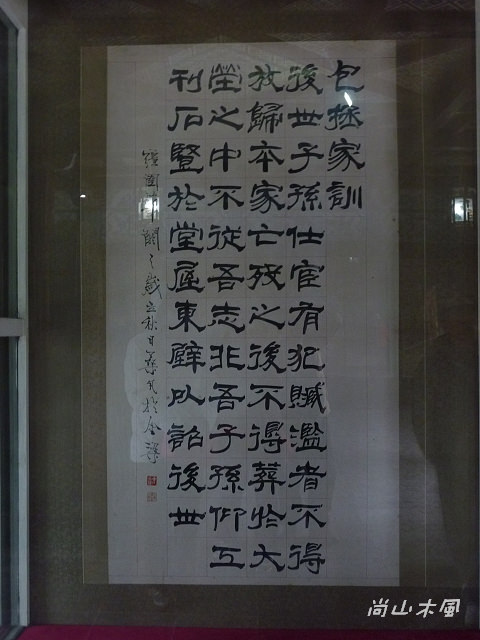 包拯家訓
後世子孫仕宦有犯贓濫者不得
放歸本家亡殁之後不得葬於大
塋之中不從吾志非吾子孫仰工
刊石豎於堂屋東壁以詔後世
之歲立秋日
尚山木風